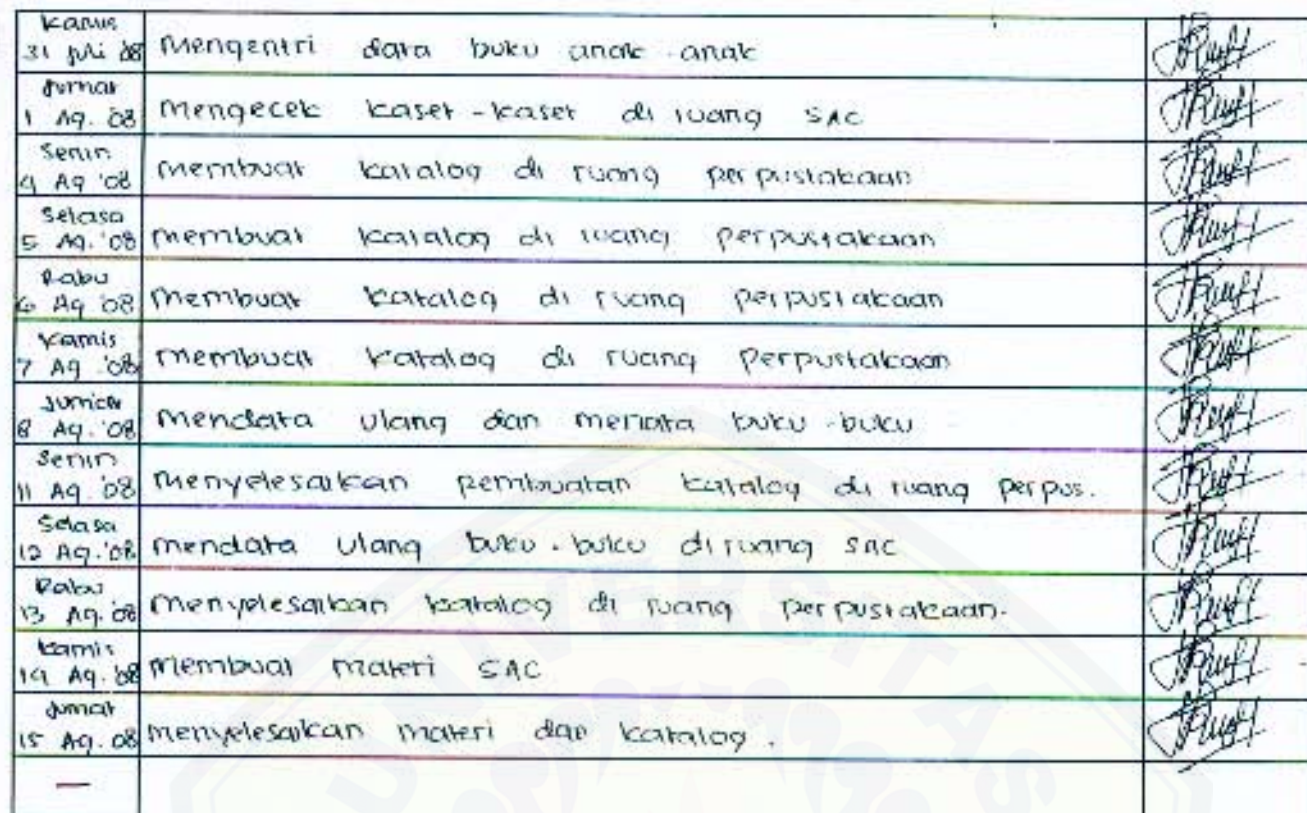 Kamis
31 Juli '08 Mengentri data buku anak-anak
Jumat
1 Ag. '08 Mengecek kaset-kaset di ruang SAC
Senin
4 Ag '08 Membuat katalog di ruang perpustakaan
Selasa
5 Ag. '08 Membuat katalog di ruang perpustakaan
Rabu
6 Ag '08 Membuat katalog di ruang perpustakaan
Kamis
7 Ag. '08 Membuat katalog di ruang Perpustakaan
Jumat
8 Ag. '08 Mendata ulang dan menata buku-buku
Senin
11 Ag. '08 Menyelesaikan pembuatan katalog di ruang perpus.
Selasa
12 Ag. '08 Mendata ulang buku-buku di ruang SAC
Rabu
13 Ag. 08 Menyelesaikan katalog di ruang perpustakaan.
Kamis
14 Ag. '08 Membuat materi SAC
Jumat
15 Ag. 08 Menyelesaikan materi dan katalog.
—
UNIVERSITAS